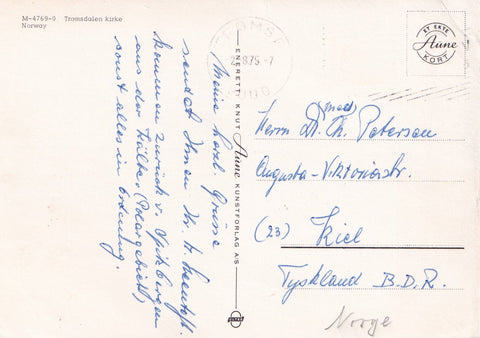 M-4769-0 Tromsdalen kirke
Norway
Meine herzl. Grüsse
sendet Ihnen Ihr
kommen zurück v. Spitzbergen
aus der Kälte (Polargebiet),
sonst alles in Ordnung.
ENERETT: KNUT Aune KUNSTFORLAG A/S
TROMSØ
.8.75.-7
ET EKTE
Aune
KORT
Herrn Dr. (med) Th. Petersen
Augusta-Viktoriastr.
(23) Kiel
Tyskland B.D.R.
Norge